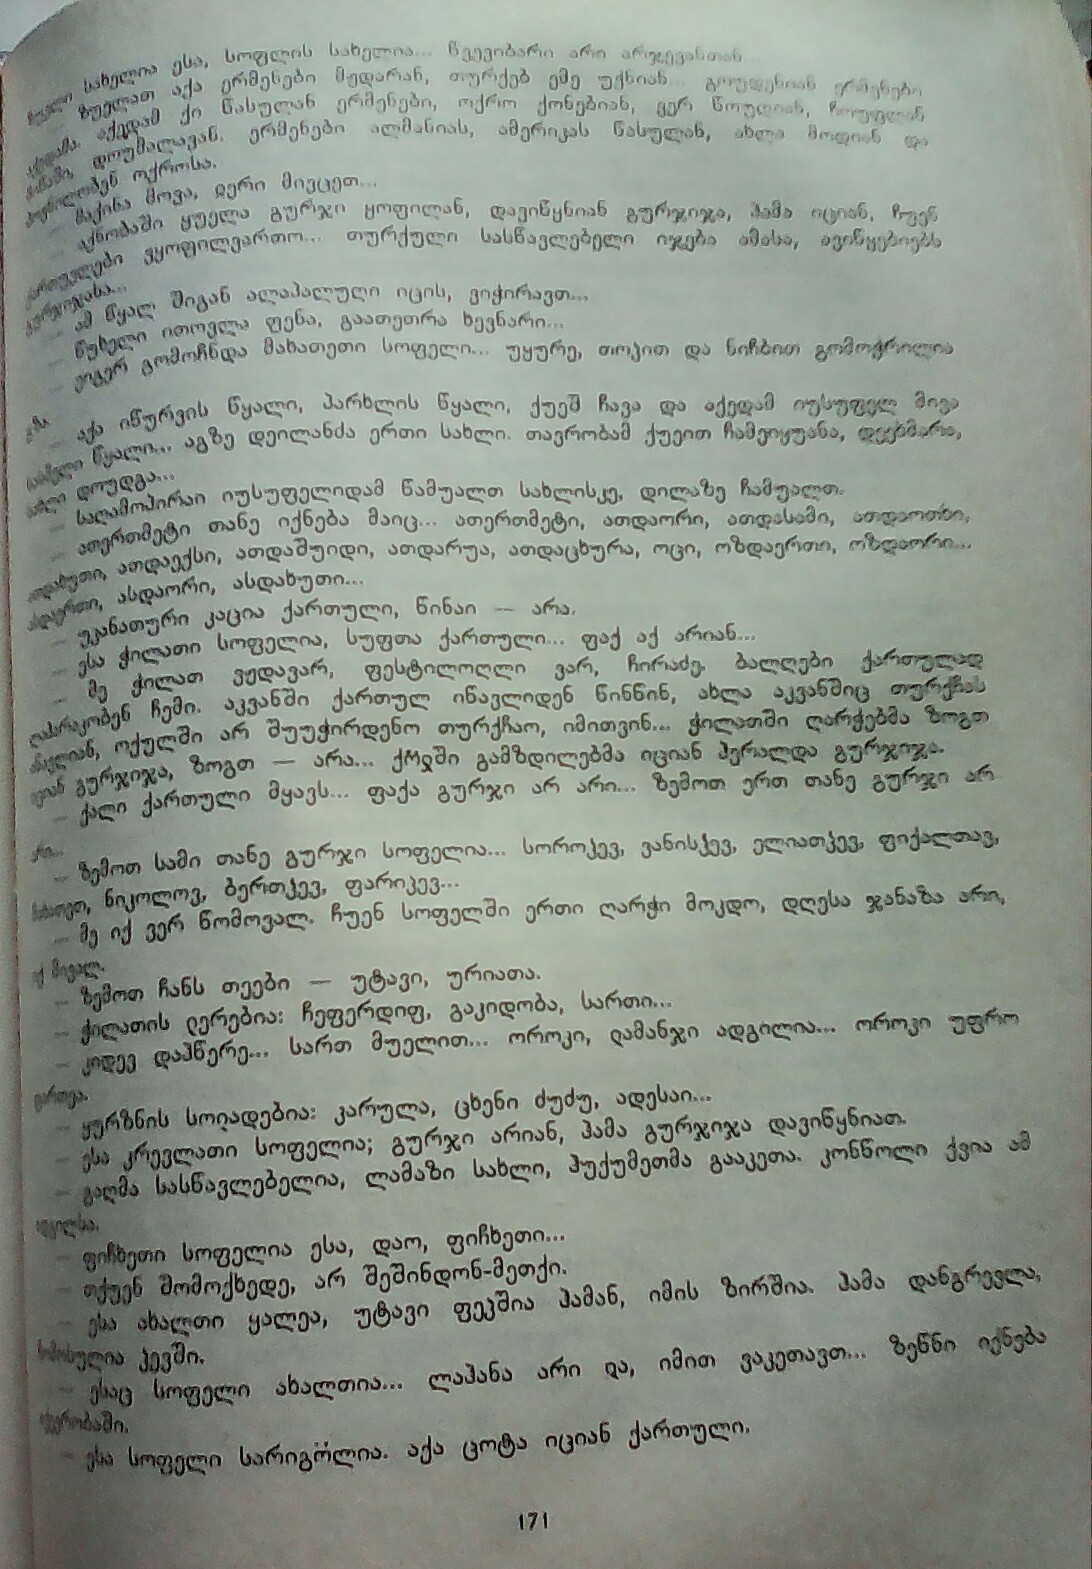 სახელია ესა, სოფლის სახელია... წვევიბარი არი არჯევანთან...
ზუელათ აქა ერმენები მჯდარან, თურქებ ემე უქნიან... გოუდენიან ერმენები
აქედამ ქი წასულან ერმენები, ოქრო ქონებიან, ვერ წოუღიან, ჩოუფლან
დოუმალავან. ერმენები ალმანიას, ამერიკას წასულან, ახლა მოდიან და
ოქროსა.
— მაქინა მოვა, ჲერი მივცეთ...
— აქნობაში ყუელა გურჯი ყოფილან, დავიწყნიან გურჯიჯა, ჰამა იციან, ჩუენ
ვყოფილვართო... თურქული სასწავლებელი იჯება ამასა, ავიწყებიებს
გურჯიჯასა...
— ამ წყალ შიგან ალაპალუღი იცის, ვიჭირავთ...
— წუხელი ითოვლა ფენა, გაათეთრა ხევნარი...
— ჲოგერ გომოჩნდა მახათეთი სოფელი... უყურე, თოკით და ნიჩბით გომოჭრილია
გზა.
— აქა იწურვის წყალი, პარხლის წყალი, ქუეშ ჩავა და აქედამ იუსუფელ მივა
წყალი... აგზე დეილანძა ერთი სახლი. თავრობამ ქუეით ჩამეიყუანა, დეეხმარა,
სახლი დოუდგა...
— საღამოპირაი იუსუფელიდამ წამუალთ სახლისკე, დილაზე ჩამუალთ.
— ათერთმეტი თანე იქნება მაიც... ათერთმეტი, ათდაორი, ათდასამი, ათდაოთხი,
ათდახუთი, ათდაექსი, ათდაშუიდი, ათდარუა, ათდაცხურა, ოცი, ოზდაერთი, ოზდაორი...
ასდაერთი, ასდაორი, ასდახუთი...
— უკანათური კაცია ქართული, წინაი — არა.
— ესა ჭილათი სოფელია, სუფთა ქართული... ფაქ აქ არიან...
— მე ჭილათ ვედავარ, ფესტილოღლი ვარ, ჩირაძე. ბაღღები ქართულად
ლაპარაკობენ ჩემი. აკვანში ქართულ ინავლიდენ წინნინ, ახლა აკვანშიც თურქჩას
ოქულში არ შუუჭირდენო თურქჩაო, იმითვინ... ჭილათში ღარჭებმა ზოგთ
იციან გურჯიჯა, ზოგთ — არა... ქოჲში გამზდილებმა იციან ჰერალდა გურჯიჯა.
— ქალი ქართული მყავს... ფაქა გურჯი არ არი... ზემოთ ერთ თანე გურჯი არ
არი...
— ზემოთ სამი თანე გურჯი სოფელია... სოროჴევ, ვანისჴევ, ელიათჴევ, ფიქალთავ,
ნიკოლოვ, ბერთჴევ, ფარიჴევ...
— მე იქ ვერ წომოვალ. ჩუენ სოფელში ერთი ღარჭი მოკდო, დღესა ჯანაზა არი,
იქ მივალ.
— ზემოთ ჩანს თეები — უტავი, ურიათა.
— ჭილათის ჲერებია: ჩეფერდიფ, გაკიდობა, სართი...
— კიდევ დაჰწერე... სართ მუელით... ოროკი, ჲამანჯი ადგილია... ოროკი უფრო
ფართეა.
— ყურზნის სოჲადებია: კარულა, ცხენი ძუძუ, ადესაი...
— ესა კრევლათი სოფელია; გურჯი არიან, ჰამა გურჯიჯა დავიწყნიათ.
— გაღმა სასწავლებელია, ლამაზი სახლი, ჰუქუმეთმა გააკეთა. კონწოლი ქვია ამ
ადგილსა.
— ფიჩხეთი სოფელია ესა, დაო, ფიჩხეთი...
— თქუენ შომოქხედე, არ შეშინდონ-მეთქი.
— ესა ახალთი ყალეა, უტავი ფეჴშია ჰამან, იმის ზირშია. ჰამა დანგრევლა,
ჴევში.
— ესაც სოფელი ახალთია... ლაჰანა არი ჲა, იმით ვაკეთავთ... ზენნი იქნება
— ესა სოფელი სარიგოლია. აქა ცოტა იციან ქართული.
171